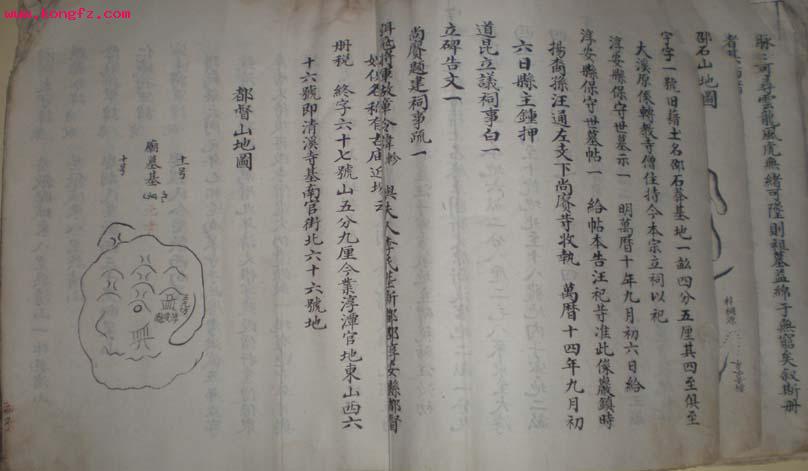 www.kongfz.com
脉二可寻雲龍風虎無緒可陞則祖墓益綿于無窮矣叙斯冊
者
邵石山地圖
字字一號旧籍土名邵石莽基地一畝四分五厘其四至俱至
大溪原係轉教寺僧住持今本宗立祠以祀
淳安縣保守世墓示一 明萬曆十年九月初六日給
淳安縣保守世墓帖一 給帖本告汪祀等准此係巖鎮時
揚裔孫汪通左文下尚賡等收執 萬曆十四年九月初
六日縣主鍾押
道昆立議祠事白一
立碑告文一
尚賡題建祠事疏一
將軍故章令諱 與夫人李氏葬新都郡淳安縣都督
册税 終字六十七號山五分九厘今業淳潭官地東山西六
十六號即清溪寺基南官街北六十六號地
都督山地圖
廟墓基